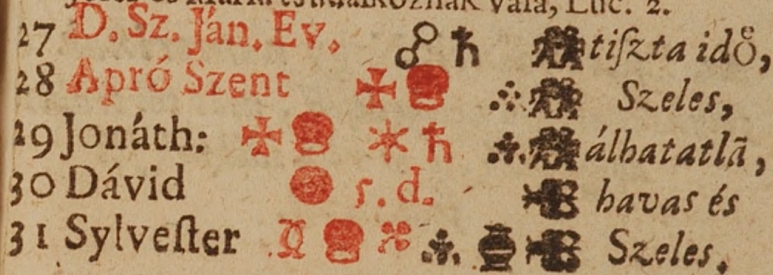 és Mária csudálkoznak vala, Luc. 2.
27 D. Sz. Ján. Ev. ☍ ♄ tiſzta idő,
28 Apró Szent Szeles,
29 Jonáth: ♄ álhatatlā,
30 Dávid 5. d. havas és
31 Sylveſter Szeles.